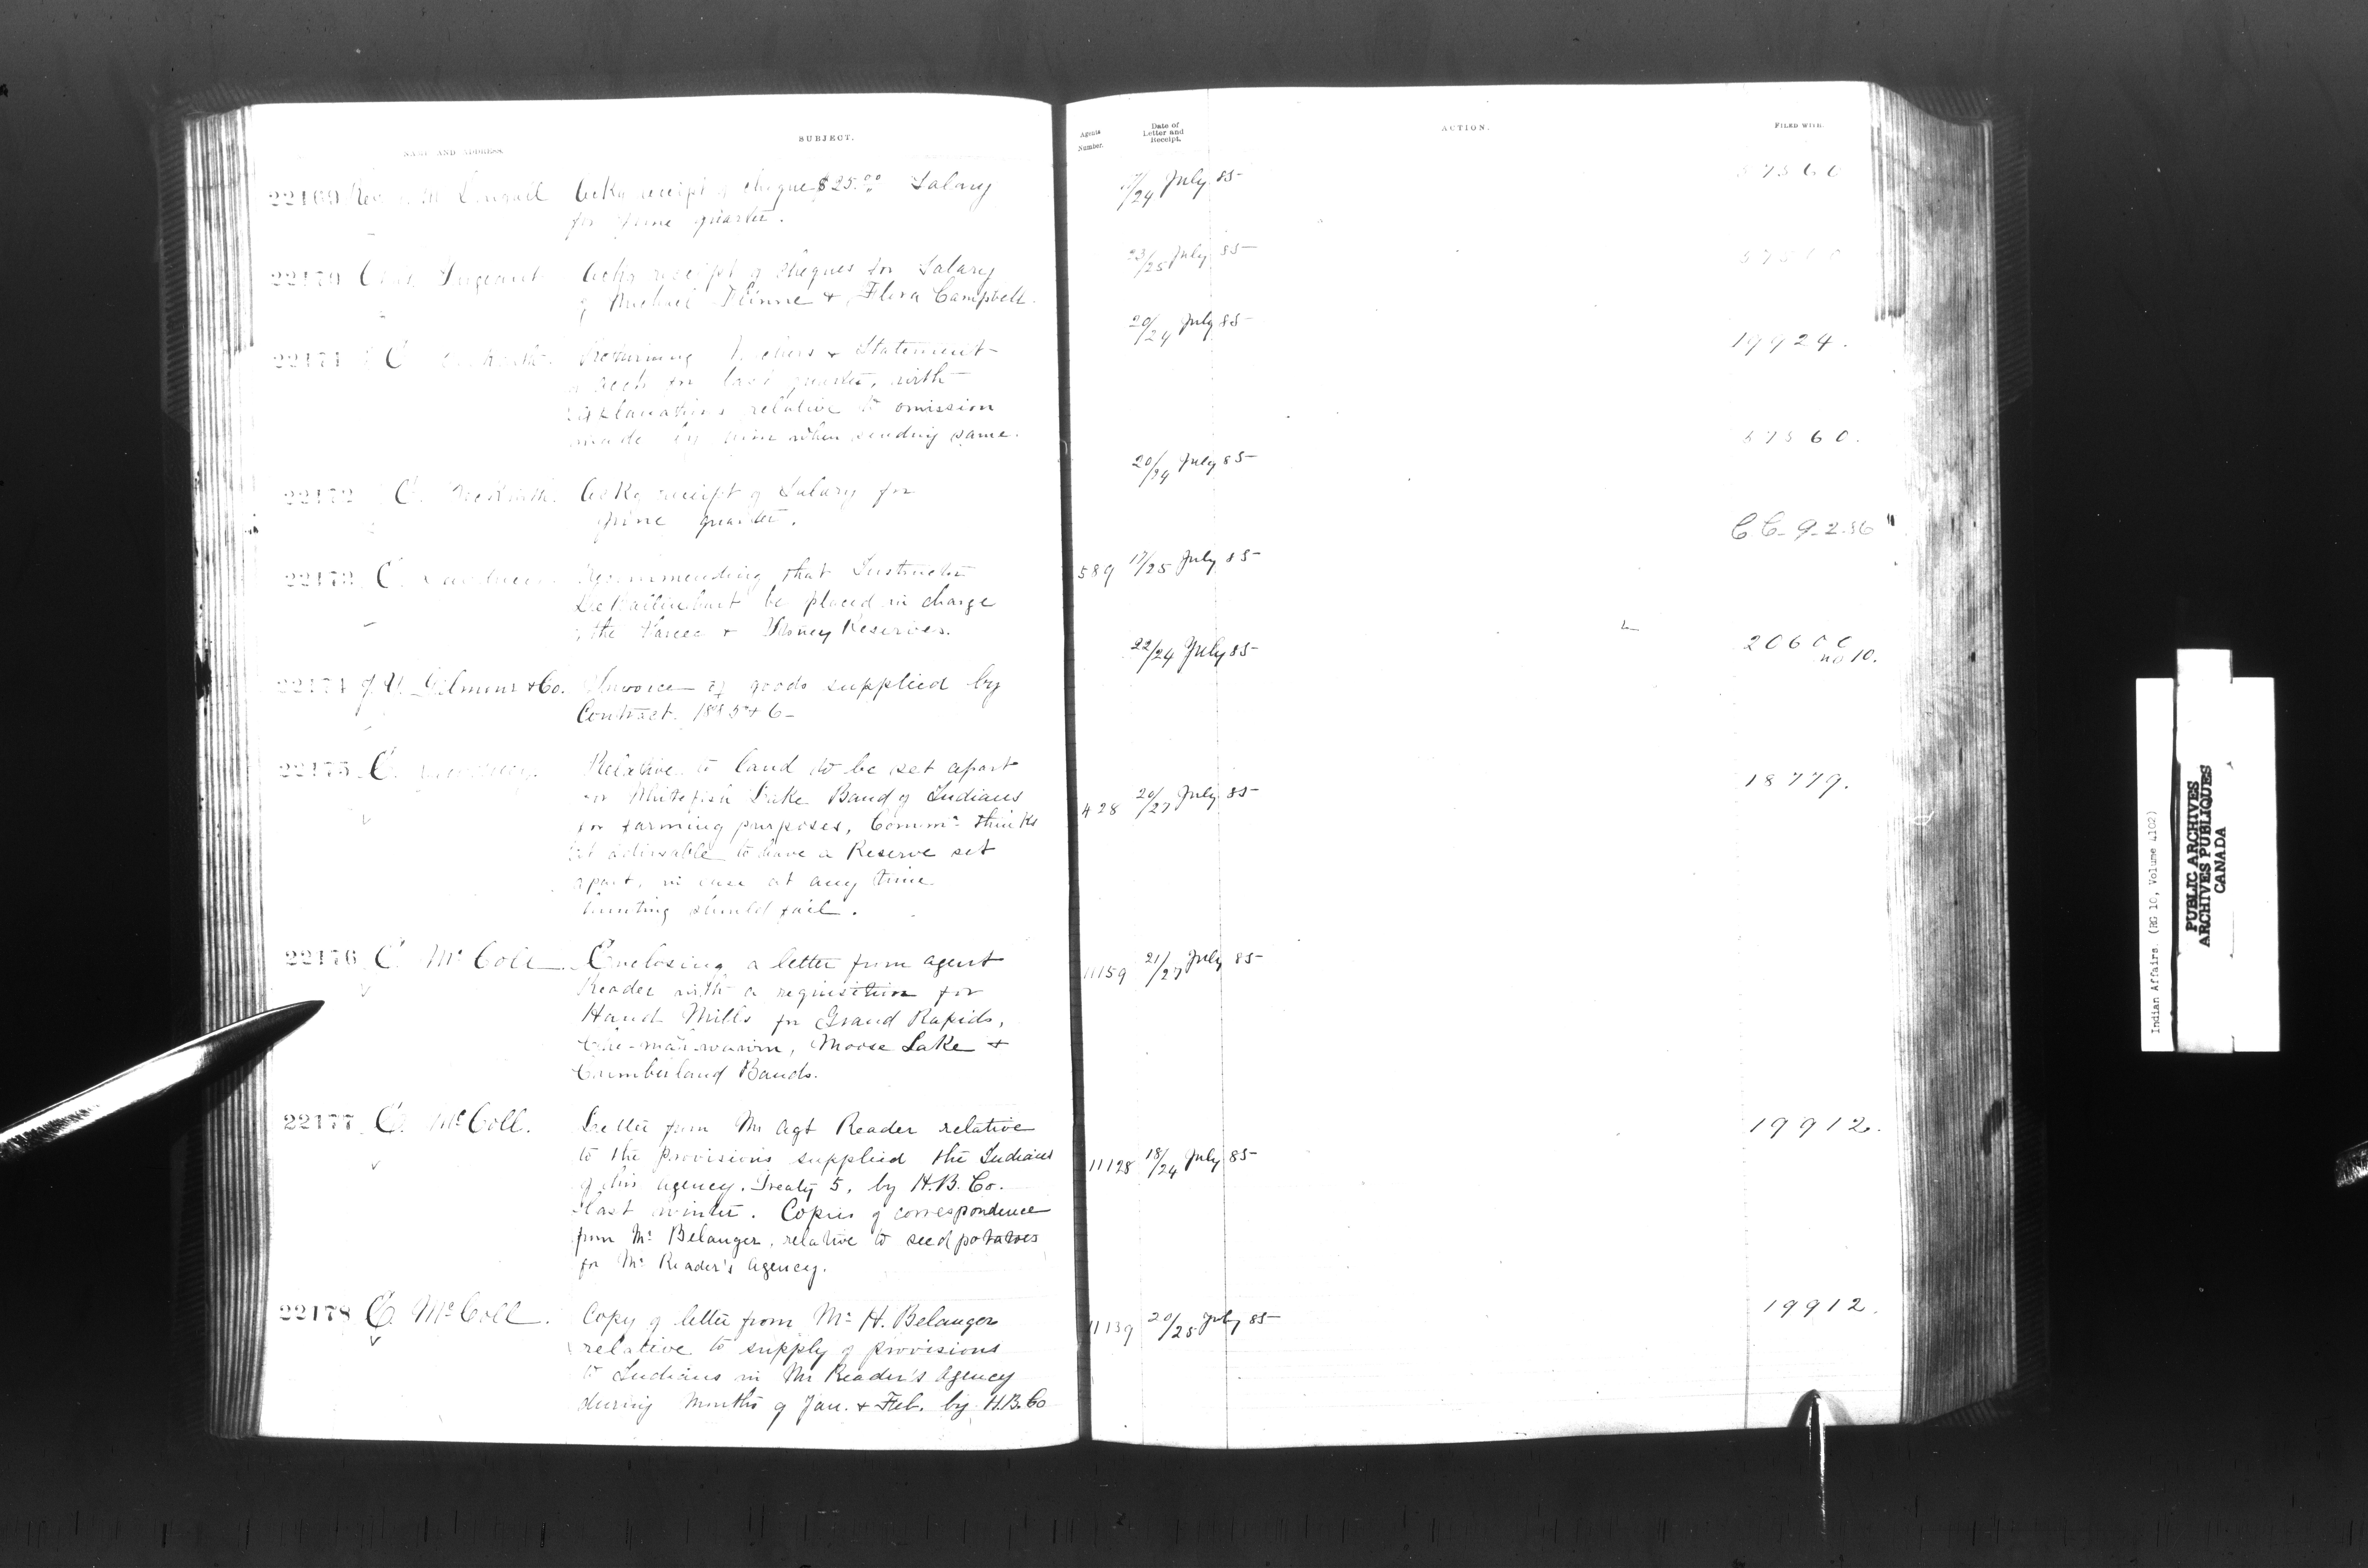 NAME AND ADDRESS.
SUBJECT.
Agents Number.
Date of Letter and Receipt.
ACTION.
FILED WITH.
22169 Rev. M
Ackg receipt of cheque $25.00 Salary
for June quarter.
/24 July 85
22170 Chas.
Ackg receipt of cheques for Salary
of Michael & Flora Campbell.
23/25 July 85
22171 C
Returning & Statement
for last quarter, with
explanations relative to omission
made by him when sending same.
20/24 July 85
19924.
22172 C.
Ackg receipt of Salary for
June quarter.
20/24 July 85
57560.
22173 C.
Recommending that Instructor
be placed in charge
the Sarcee & Stoney Reserves.
589 17/25 July 85
22174 & Co.
Invoice of goods supplied by
Contract 1885 & 6
22/24 July 85
no 10.
22175 C.
Relative to land to be set apart
for Whitefish Lake Band of Indians
for farming purposes, Commr. thinks
it advisable to have a Reserve set
apart, in case at any time
hunting should fail.
428 20/27 July 85
18779.
22176 E. McColl
Enclosing a letter from agent
Reader with a requisition for
Hand Mills for Grand Rapids,
Moose Lake &
Cumberland Bands.
11159 21/27 July 85
22177 E. McColl.
Letter from Mr Agt Reader relative
to the provisions supplied the Indians
of his agency, Treaty 5, by H.B. Co.
last winter. Copies of correspondence
from Mr. Belanger, relative to seed potatoes
for Mr. Reader's agency.
11128 18/24 July 85
19912.
22178 E. McColl.
Copy of letter from Mr. H. Belanger
relative to supply of provisions
to Indians in Mr Reader's Agency
during months of Jan. & Feb. by H.B. Co
11139 20/25 July 85
19912.
Indian Affairs. (RG 10, Volume 4102)
PUBLIC ARCHIVES
ARCHIVES PUBLIQUES
CANADA